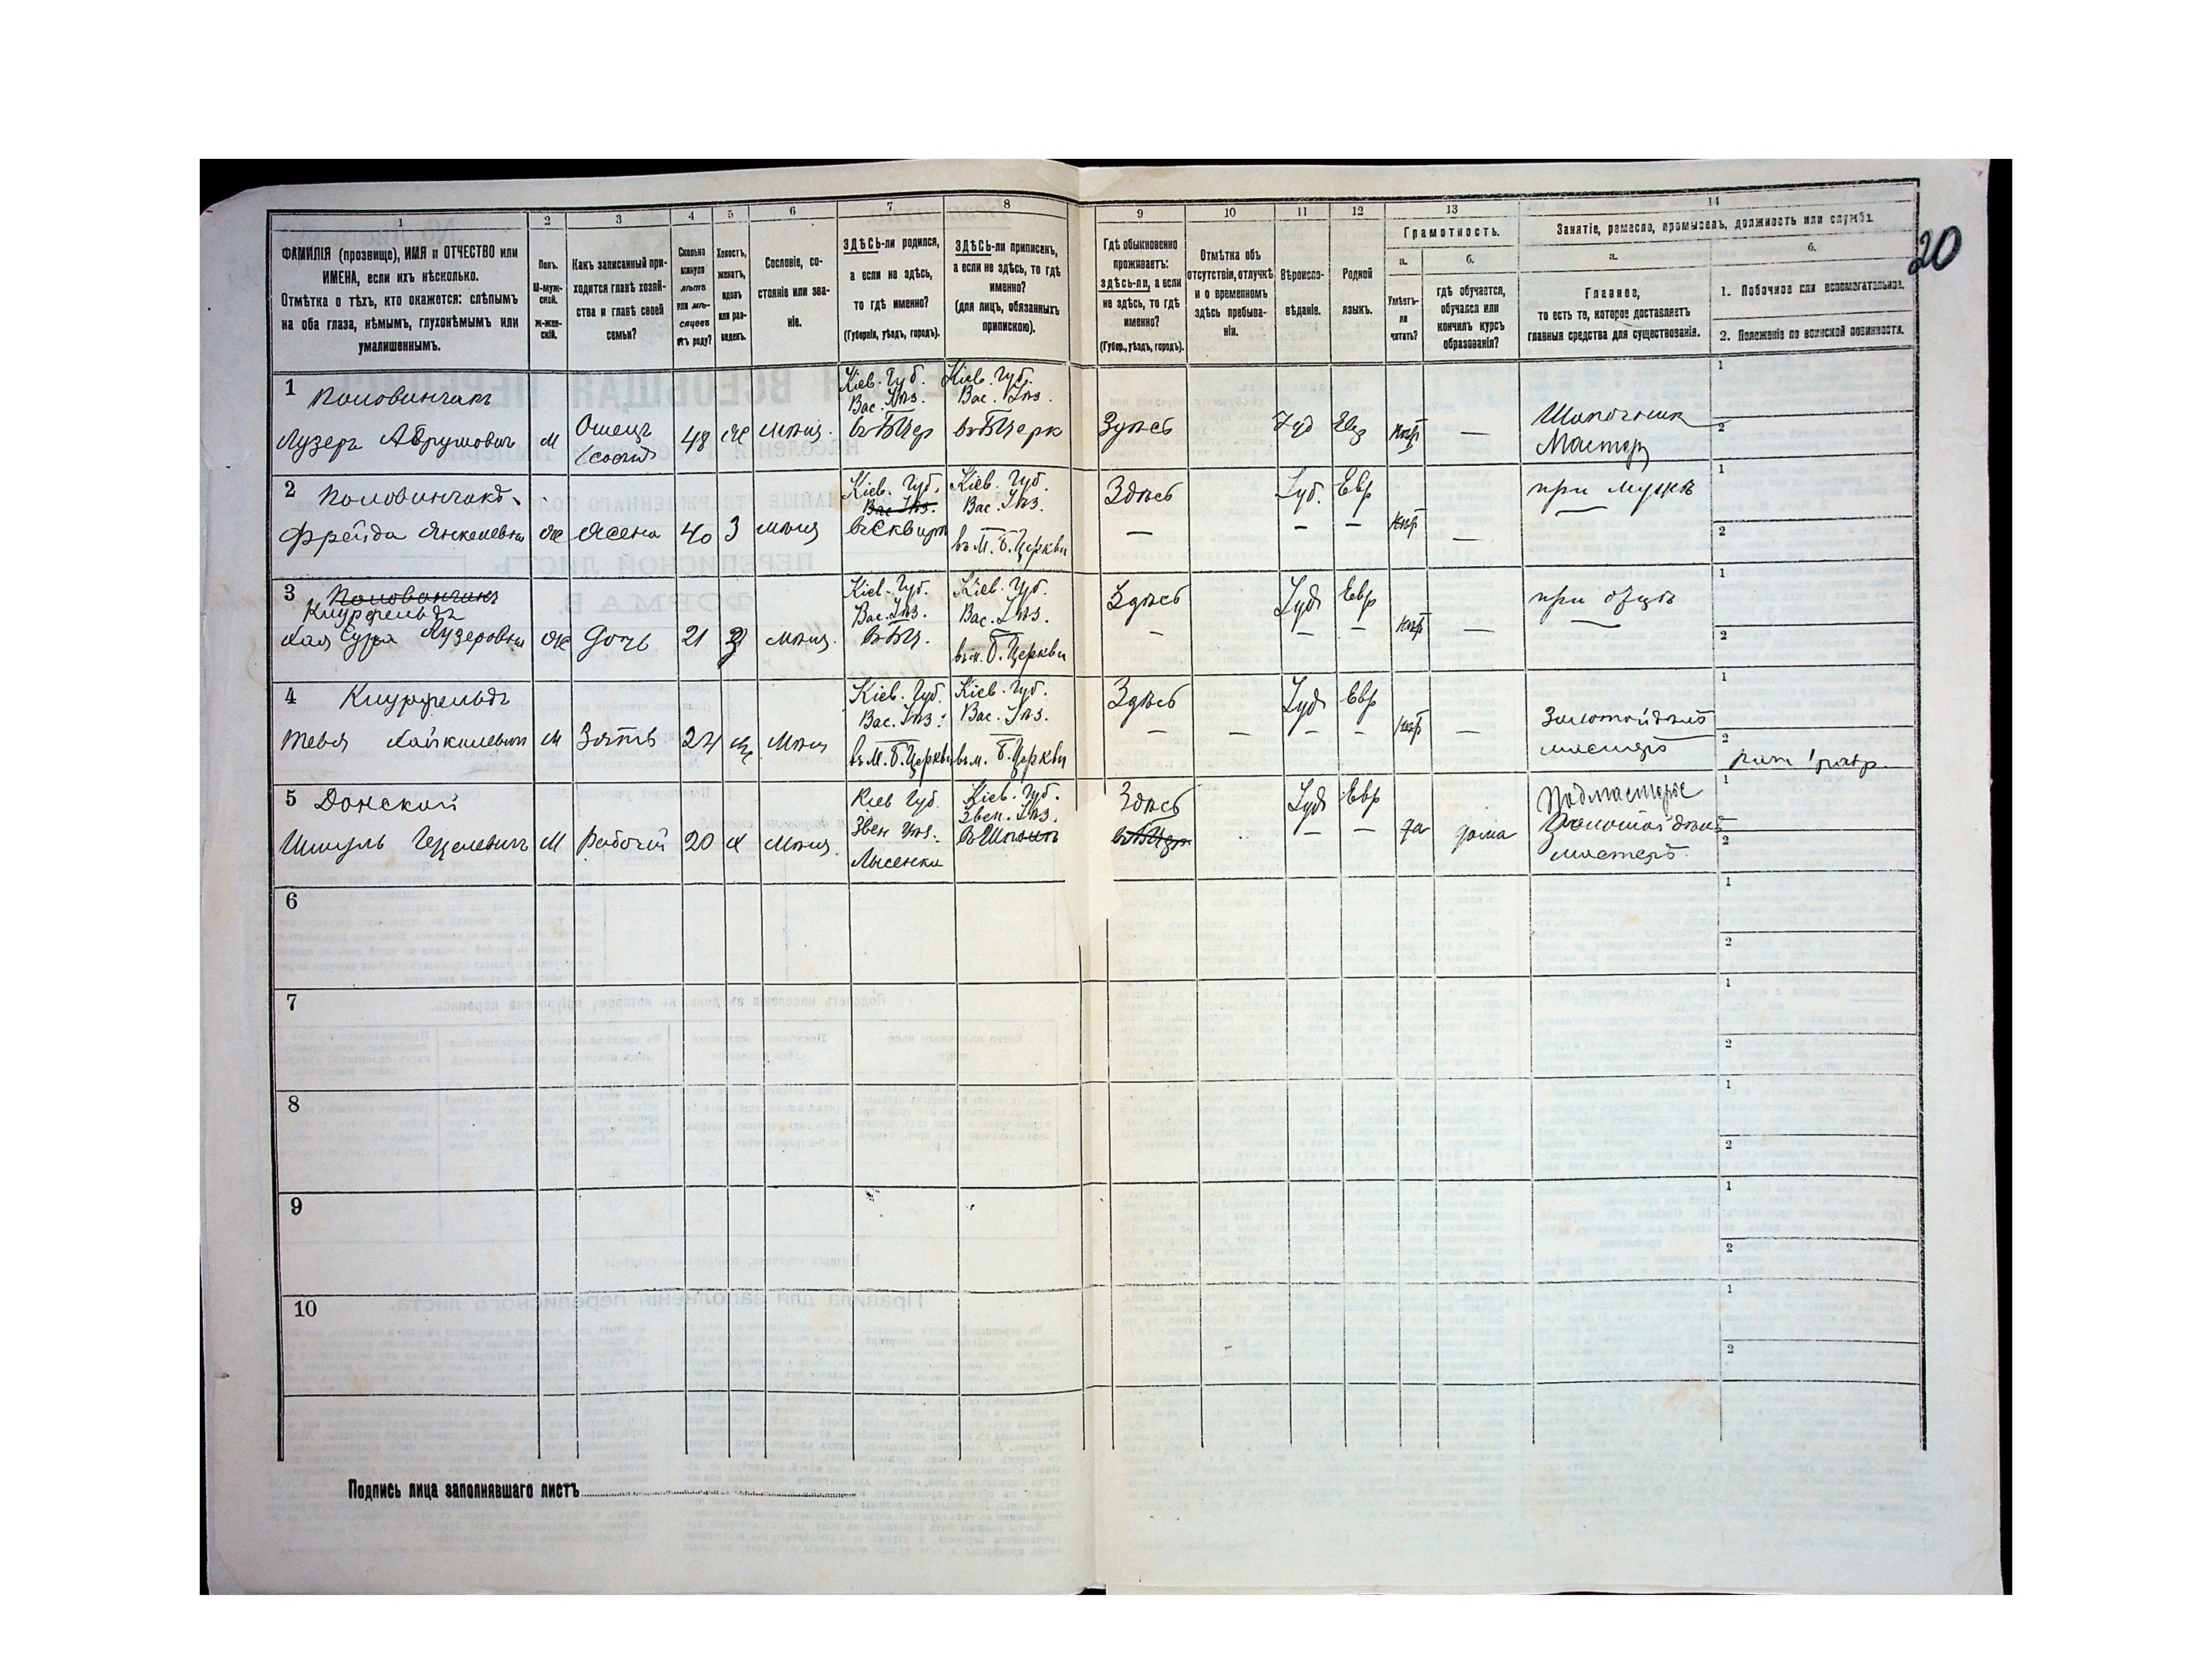 20
1 2 3 4 5 6 7 8 9 10 11 12 13 14
ФАМИЛІЯ (прозвище), ИМЯ и ОТЧЕСТВО или
ИМЕНА, если ихъ нѣсколько.
Отмѣтка о тѣхъ, кто окажется: слѣпымъ
на оба глаза, нѣмымъ, глухонѣмымъ или
умалишеннымъ.
Полъ.
М-муж-
ской.
Ж-жен-
скій.
Какъ записанный при-
ходится главѣ хозяй-
ства и главѣ своей
семьи?
Сколько
минуло
лѣтъ
или мѣ-
сяцевъ
отъ роду?
Холостъ,
женатъ,
вдовъ
или раз-
веденъ.
Сословіе, со-
стояніе или зва-
ніе.
ЗДѢСЬ-ли родился,
а если не здѣсь,
то гдѣ именно?
(Губернія, уѣздъ, городъ).
ЗДѢСЬ-ли приписанъ,
а если не здѣсь, то гдѣ
именно?
(для лицъ, обязанныхъ
припискою).
Гдѣ обыкновенно
проживаетъ:
здѣсь-ли, а если
не здѣсь, то гдѣ
именно?
(Губер., уѣздъ, городъ).
Отмѣтка объ
отсутствіи, отлучкѣ
и о временномъ
здѣсь пребыва-
ніи.
Вѣроиспо-
вѣданіе.
Родной
языкъ.
Грамотность.
а.
Умѣетъ-
ли
читать?
б.
гдѣ обучается,
обучался или
кончилъ курсъ
образованія?
Занятіе, ремесло, промыселъ, должность или служба.
а.
Главное,
то есть то, которое доставляетъ
главныя средства для существованія.
б.
1. Побочное или вспомогательное.
2. Положеніе по воинской повинности.
1 Половинчикъ
Лузеръ Аврумовичъ
М
Отецъ
48
Ж
мѣщ.
Кіев. Губ.
Вас. Уѣз.
въ БЦер
Кіев. Губ.
Вас. Уѣз.
въ БЦерк
Здѣсь
Іуд
Евр
—
Шапочник
Мастер
1
2
2 Половинчикъ
Фрейда Янкелевна
Ж
Жена
40
З
мѣщ
Кіев. Губ.
Вас. Уѣз.
въ Сквирѣ
Кіев. Губ.
Вас. Уѣз.
въ М. Б. Церкви
Здѣсь
—
Іуд.
—
Евр
—
—
при мужѣ
1
2
3 Половинчикъ
Кнурфельдъ
Хая Сура Лузеровна
Ж
Дочь
21
З
мѣщ.
Кіев. Губ.
Вас. Уѣз.
въ БЦ.
Кіев. Губ.
Вас. Уѣз.
въ м. Б. Церкви
Здѣсь
—
Іуд
—
Евр
—
—
при отцѣ
1
2
4 Кнурфельдъ
Тевя Хайкилевич
М
Зять
24
Мѣщ
Кіев. Губ.
Вас. Уѣз.
въ М. Б. Церкви
Кіев. Губ.
Вас. Уѣз.
въ м. Б. Церкви
Здѣсь
—
—
Іуд
—
Евр
—
—
Золотыхъ дѣлъ
мастеръ
1
2
5 Донской
Шмуль
М
Рабочій
20
Х
Мѣщ.
Кіев Губ.
Звен Уѣз.
Лысенки
Кіев. Губ.
Звен. Уѣз.
Здѣсь
Іуд
—
Евр
—
да
дома
Подмастерье
мастеръ.
1
2
6
1
2
7
1
2
8
1
2
9
1
2
10
1
2
Подпись лица заполнявшаго листъ